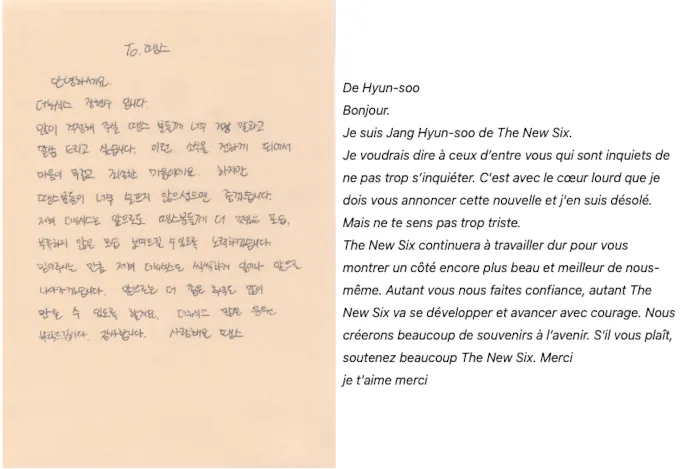 To. 땡스
안녕하세요
더뉴식스 장현수 입니다.
많이 걱정해 주실 땡스 분들께 너무 걱정 말라고
말씀 드리고 싶습니다. 이런 소식을 전하게 되어서
마음이 무겁고 죄송한 마음이에요. 하지만
땡스분들이 너무 슬프지 않으셨으면 좋겠습니다.
저희 더뉴식스는 앞으로도 땡스분들께 더 멋있는 모습,
부족하지 않은 모습 보여드릴 수 있도록 노력하겠습니다.
믿어주시는 만큼 저희 더뉴식스도 씩씩하게 앞으로
나아가겠습니다. 앞으로는 더 좋은 추억도 많이
만들 수 있도록 할게요. 더뉴식스 많은 응원
부탁드립니다. 감사합니다. 사랑해요 땡스
De Hyun-soo
Bonjour.
Je suis Jang Hyun-soo de The New Six.
Je voudrais dire à ceux d’entre vous qui sont inquiets de
ne pas trop s’inquiéter. C'est avec le cœur lourd que je
dois vous annoncer cette nouvelle et j'en suis désolé.
Mais ne te sens pas trop triste.
The New Six continuera à travailler dur pour vous
montrer un côté encore plus beau et meilleur de nous-
même. Autant vous nous faites confiance, autant The
New Six va se développer et avancer avec courage. Nous
créerons beaucoup de souvenirs à l’avenir. S’il vous plaît,
soutenez beaucoup The New Six. Merci
je t'aime merci